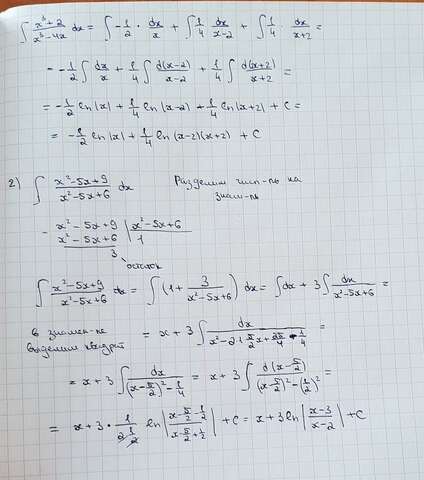 ∫ (x³+2)/(x³-4x) dx = ∫ -1/2 · dx/x + ∫ 1/4 dx/(x-2) + ∫ 1/4 dx/(x+2) =
= -1/2 ∫ dx/x + 1/4 ∫ d(x-2)/(x-2) + 1/4 ∫ d(x+2)/(x+2) =
= -1/2 ln|x| + 1/4 ln|x-2| + 1/4 ln|x+2| + C =
= -1/2 ln|x| + 1/4 ln(x-2)(x+2) + C
2) ∫ (x²-5x+9)/(x²-5x+6) dx Разделим числ-ль на
знам-ль
- x²-5x+9 | x²-5x+6
x²-5x+6 1
3
остаток
∫ (x²-5x+9)/(x²-5x+6) dx = ∫ (1 + 3/(x²-5x+6)) dx = ∫dx + 3∫ dx/(x²-5x+6) =
в знамен-ле = x + 3∫ dx/(x²-2·5/2x+25/4-1/4) =
выделим квадрат
= x + 3∫ dx/((x-5/2)²-1/4) = x + 3∫ d(x-5/2)/((x-5/2)²-(1/2)²) =
= x + 3 · 1/(2·1/2) ln|(x-5/2-1/2)/(x-5/2+1/2)| + C = x + 3 ln|(x-3)/(x-2)| + C